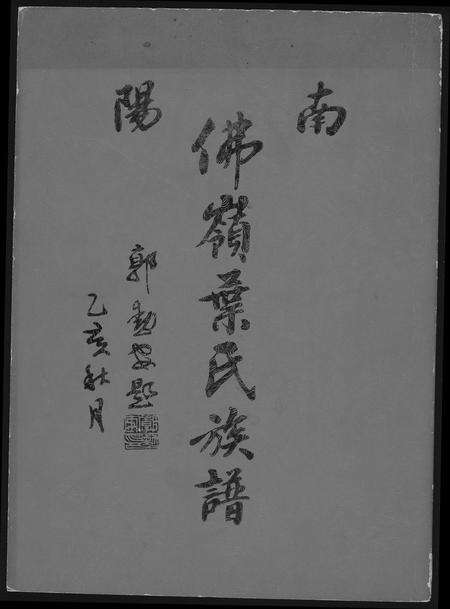 南陽
佛嶺葉氏族譜
郭勳安題
乙亥秋月